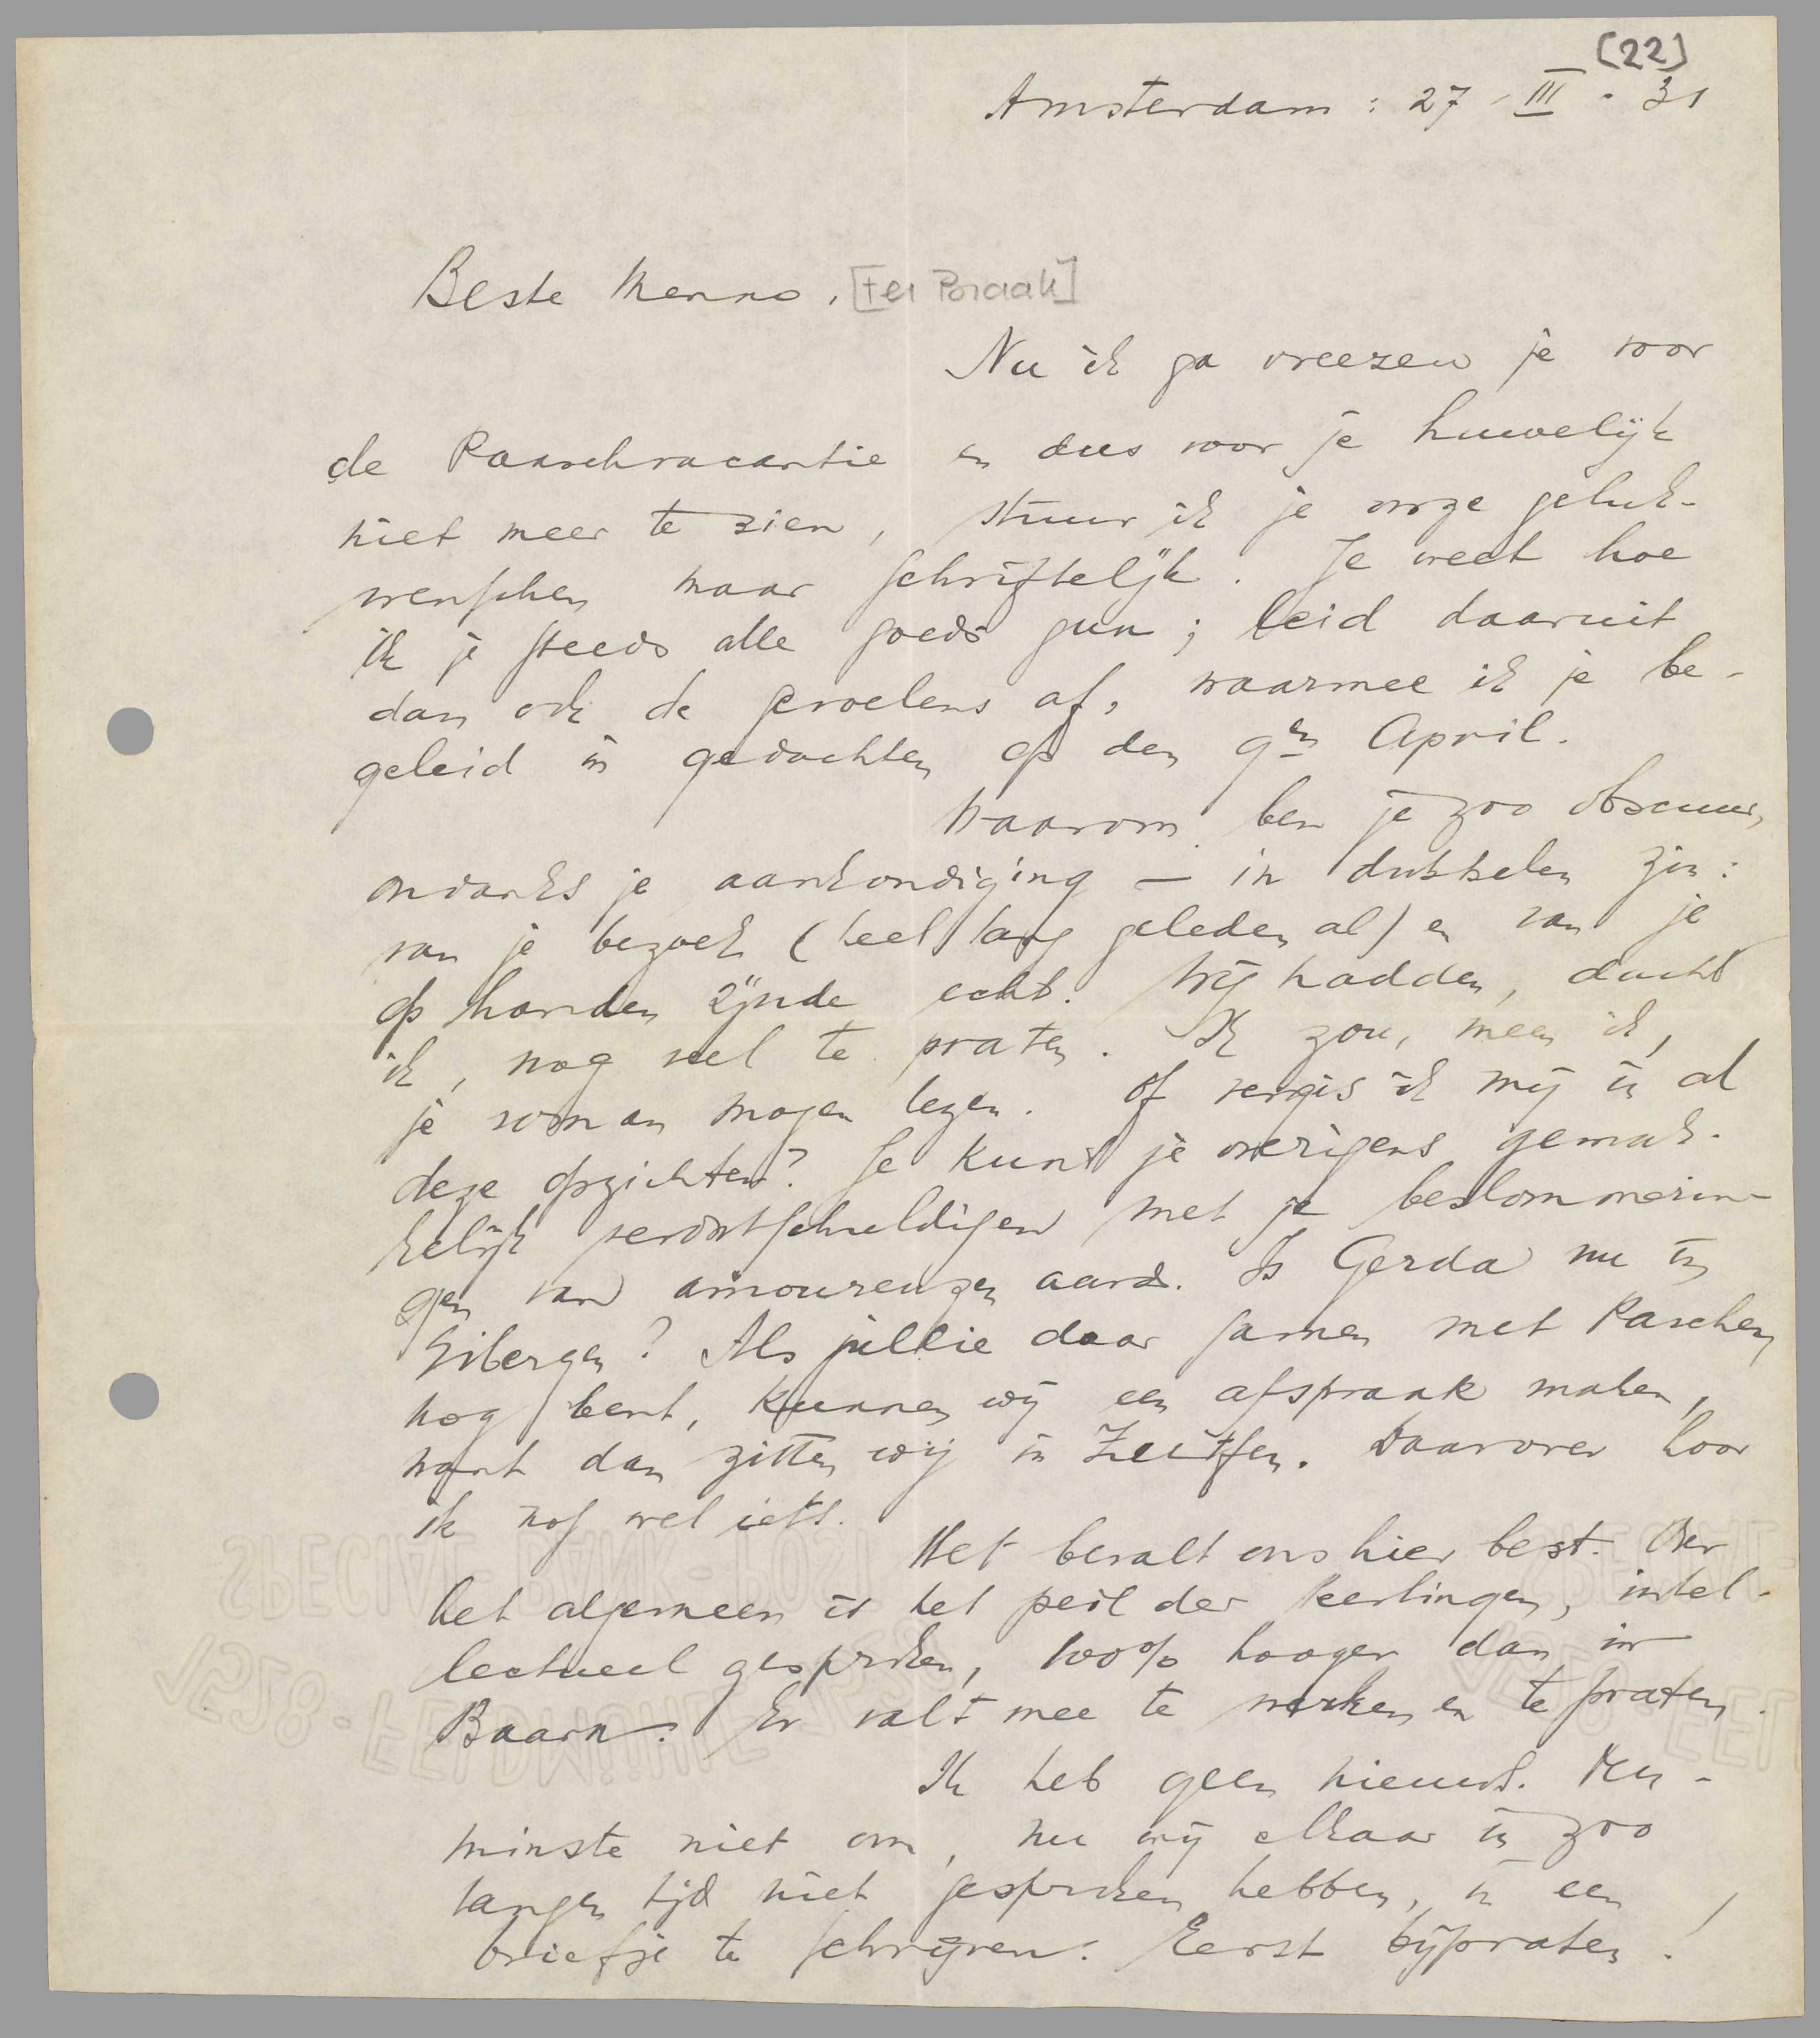 (22)
Amsterdam : 27 - III - 31
Beste Menno, [ter Braak]
Nu ik ga vreezen je voor
de Paaschvacantie en dus voor je huwelijk
niet meer te zien, stuur ik je onze geluk-
wenschen maar schriftelijk. Je weet hoe
ik je steeds alle goeds gun; leid daaruit
dan ook de gevoelens af, waarmee ik je be-
geleid in gedachten op den 9en April.
Waarom ben je zoo obscuur,
ondanks je aankondiging — in dubbelen zin:
van je bezoek (heel lang geleden al) en van je
op handen zijnde echt. Wij hadden, dacht
ik, nog veel te praten. Ik zou, meen ik,
je roman mogen lezen. Of vergis ik mij in al
deze opzichten? Je kunt je overigens gemak-
kelijk verontschuldigen met je beslommerin-
gen van amoureuzen aard. Is Gerda nu in
Eibergen? Als jullie daar samen met Paschen
nog bent, kunnen wij een afspraak maken,
want dan zitten wij in Zutfen. Daarover hoor
ik nog wel iets.
Het bevalt ons hier best. Over
het algemeen is het peil der leerlingen, intel-
lectueel gesproken, 100% hooger dan in
Baarn. Er valt mee te werken en te praten.
Ik heb geen nieuws. Ten-
minste niet om, nu wij elkaar in zoo
langen tijd niet gesproken hebben, in een
briefje te schrijven. Eerst bijpraten!
SPECIAL-BANK-POST